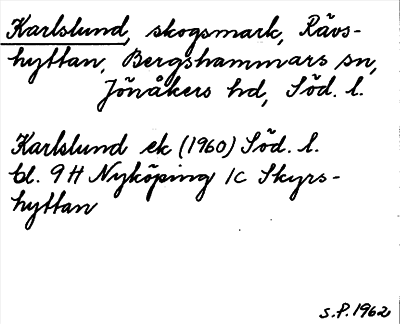 Karlslund, skogsmark, Rävs-
hyttan, Bergshammars sn,
Jönåkers hd, Söd. l.
Karlslund ek (1960) Söd. l.
bl. 9H Nyköping 1c Skyrs-
hyttan
S.P. 1962